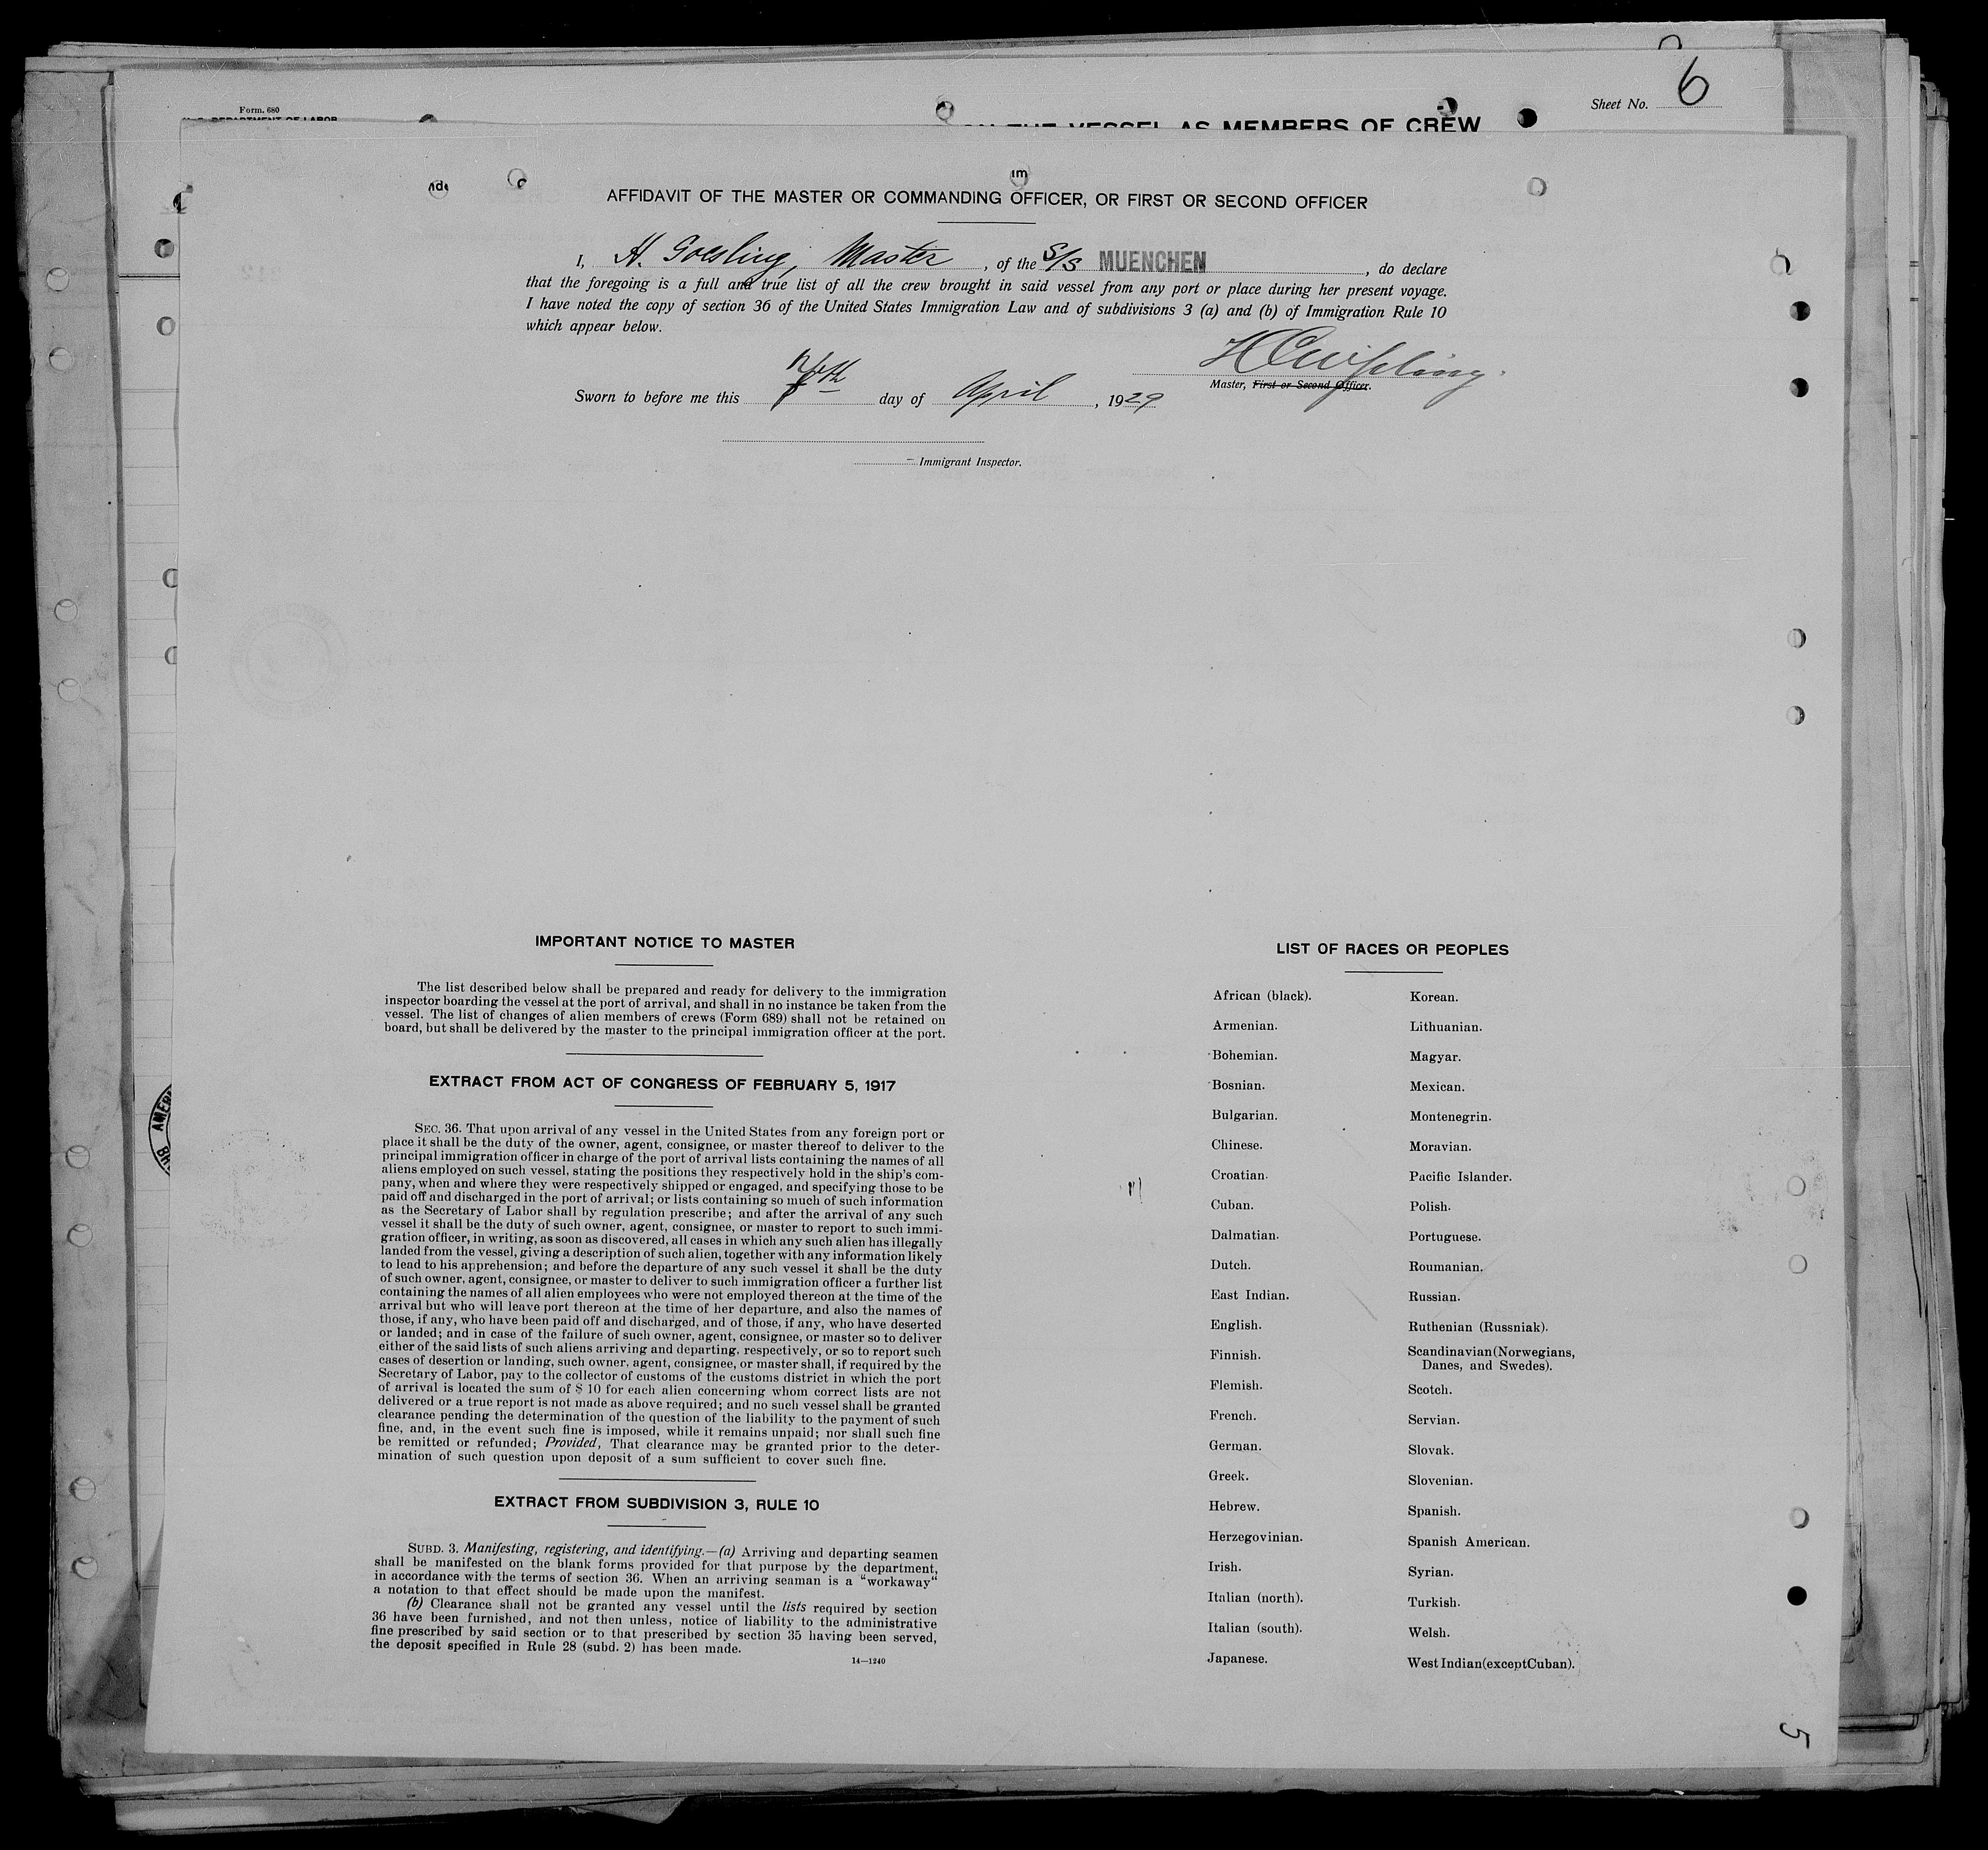 Form. 680
Sheet No. 6
THE VESSEL AS MEMBERS OF CREW
AFFIDAVIT OF THE MASTER OR COMMANDING OFFICER, OR FIRST OR SECOND OFFICER
I, H. Goesling, Master, of the S/S MUENCHEN, do declare
that the foregoing is a full and true list of all the crew brought in said vessel from any port or place during her present voyage.
I have noted the copy of section 36 of the United States Immigration Law and of subdivisions 3 (a) and (b) of Immigration Rule 10
which appear below.
Master, First or Second Officer.
Sworn to before me this day of April, 1929
Immigrant Inspector.
IMPORTANT NOTICE TO MASTER
The list described below shall be prepared and ready for delivery to the immigration
inspector boarding the vessel at the port of arrival, and shall in no instance be taken from the
vessel. The list of changes of alien members of crews (Form 689) shall not be retained on
board, but shall be delivered by the master to the principal immigration officer at the port.
EXTRACT FROM ACT OF CONGRESS OF FEBRUARY 5, 1917
SEC. 36. That upon arrival of any vessel in the United States from any foreign port or
place it shall be the duty of the owner, agent, consignee, or master thereof to deliver to the
principal immigration officer in charge of the port of arrival lists containing the names of all
aliens employed on such vessel, stating the positions they respectively hold in the ship's com-
pany, when and where they were respectively shipped or engaged, and specifying those to be
paid off and discharged in the port of arrival; or lists containing so much of such information
as the Secretary of Labor shall by regulation prescribe; and after the arrival of any such
vessel it shall be the duty of such owner, agent, consignee, or master to report to such immi-
gration officer, in writing, as soon as discovered, all cases in which any such alien has illegally
landed from the vessel, giving a description of such alien, together with any information likely
to lead to his apprehension; and before the departure of any such vessel it shall be the duty
of such owner, agent, consignee, or master to deliver to such immigration officer a further list
containing the names of all alien employees who were not employed thereon at the time of the
arrival but who will leave port thereon at the time of her departure, and also the names of
those, if any, who have been paid off and discharged, and of those, if any, who have deserted
or landed; and in case of the failure of such owner, agent, consignee, or master so to deliver
either of the said lists of such aliens arriving and departing, respectively, or so to report such
cases of desertion or landing, such owner, agent, consignee, or master shall, if required by the
Secretary of Labor, pay to the collector of customs of the customs district in which the port
of arrival is located the sum of $ 10 for each alien concerning whom correct lists are not
delivered or a true report is not made as above required; and no such vessel shall be granted
clearance pending the determination of the question of the liability to the payment of such
fine, and, in the event such fine is imposed, while it remains unpaid; nor shall such fine
be remitted or refunded; Provided, That clearance may be granted prior to the deter-
mination of such question upon deposit of a sum sufficient to cover such fine.
EXTRACT FROM SUBDIVISION 3, RULE 10
SUBD. 3. Manifesting, registering, and identifying.—(a) Arriving and departing seamen
shall be manifested on the blank forms provided for that purpose by the department,
in accordance with the terms of section 36. When an arriving seaman is a "workaway"
a notation to that effect should be made upon the manifest.
(b) Clearance shall not be granted any vessel until the lists required by section
36 have been furnished, and not then unless, notice of liability to the administrative
fine prescribed by said section or to that prescribed by section 35 having been served,
the deposit specified in Rule 28 (subd. 2) has been made.
14—1240
LIST OF RACES OR PEOPLES
African (black).
Armenian.
Bohemian.
Bosnian.
Bulgarian.
Chinese.
Croatian.
Cuban.
Dalmatian.
Dutch.
East Indian.
English.
Finnish.
Flemish.
French.
German.
Greek.
Hebrew.
Herzegovinian.
Irish.
Italian (north).
Italian (south).
Japanese.
Korean.
Lithuanian.
Magyar.
Mexican.
Montenegrin.
Moravian.
Pacific Islander.
Polish.
Portuguese.
Roumanian.
Russian.
Ruthenian (Russniak).
Scandinavian(Norwegians,
Danes, and Swedes).
Scotch.
Servian.
Slovak.
Slovenian.
Spanish.
Spanish American.
Syrian.
Turkish.
Welsh.
West Indian(exceptCuban).
5